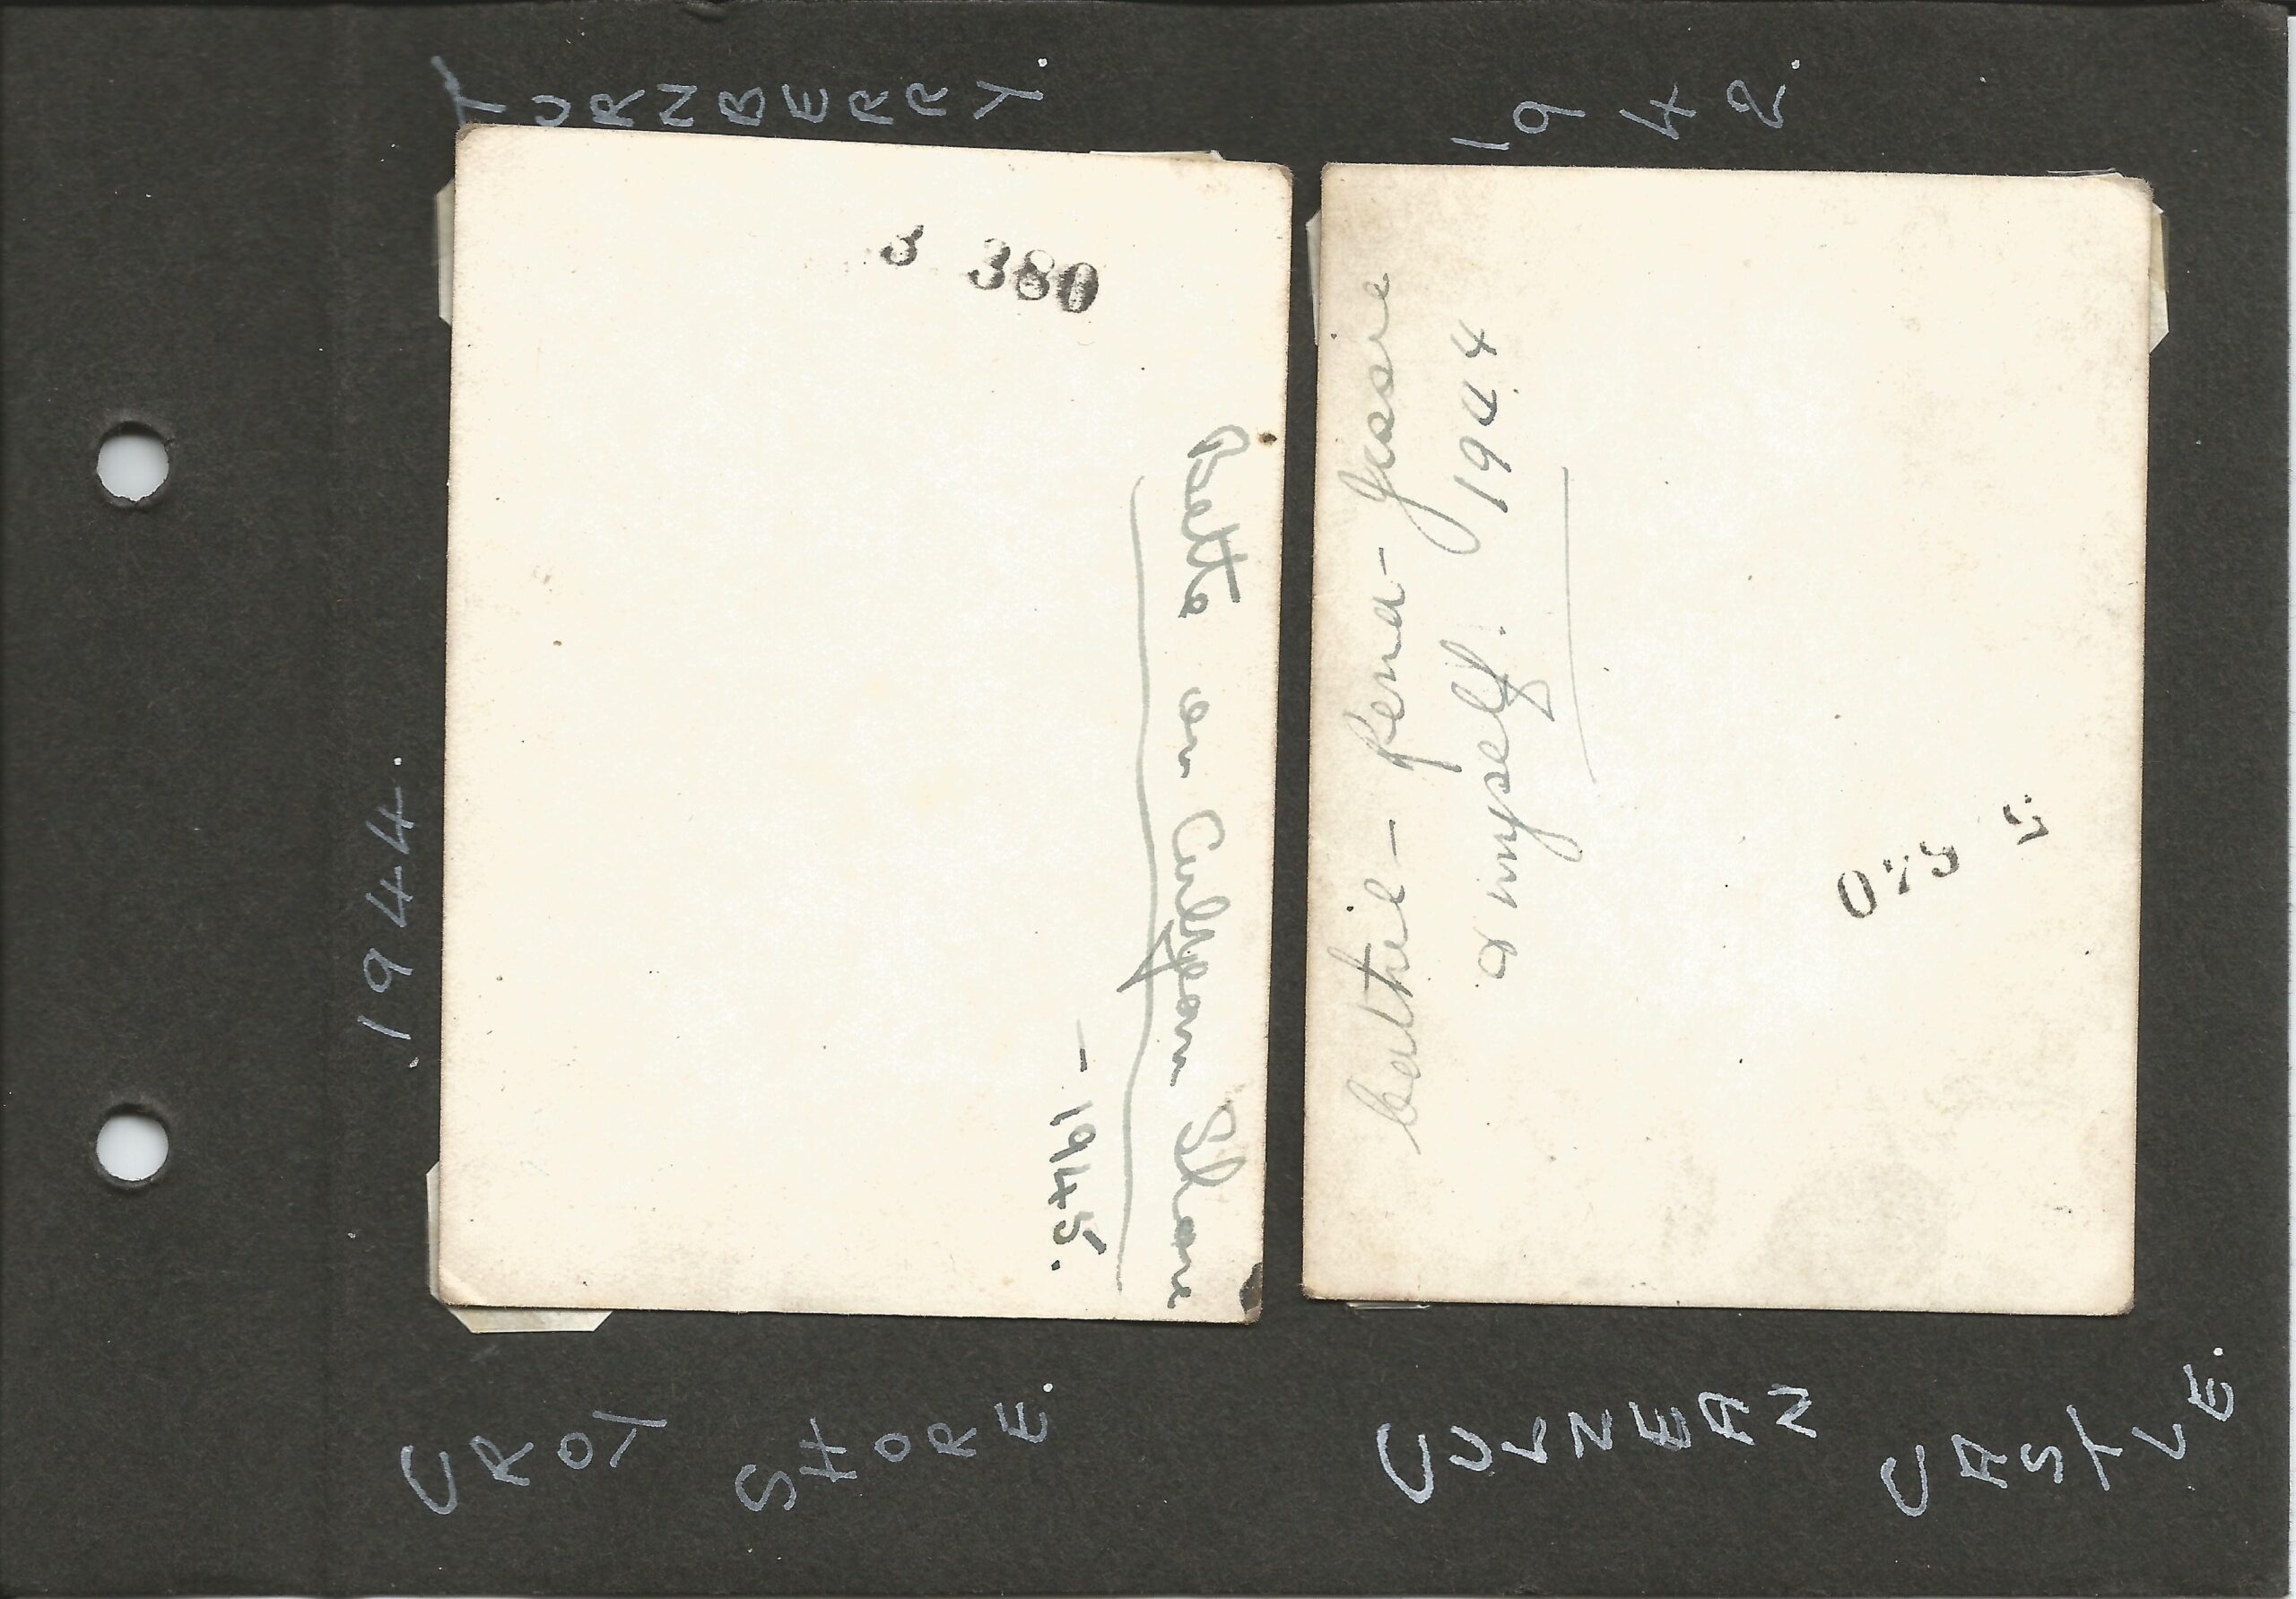 TURNBERRY.
1942.
.1944.
3 380
Betta on Culzean Shore
- 1945.
Cathie - Rena - Jessie
& myself. 1944
CROY SHORE.
CULZEAN CASTLE.